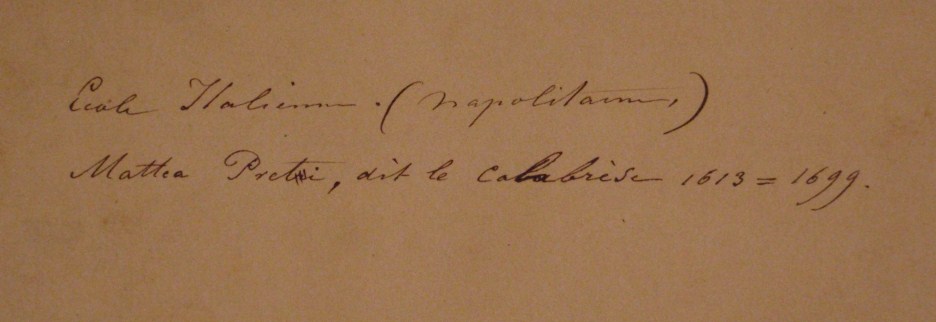 Ecole Italienne. (napolitaine,)
Mattea Pretti, dit le calabrèse 1613 = 1699.